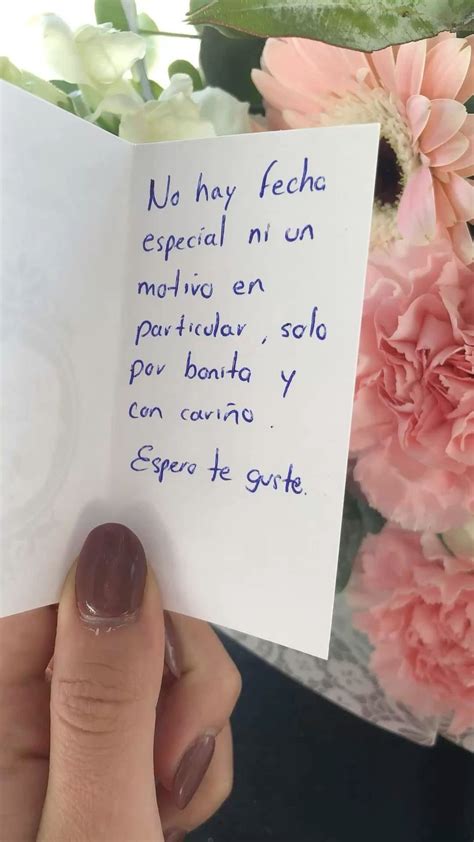 No hay fecha
especial ni un
motivo en
particular, solo
por bonita y
con cariño.
Espero te guste.